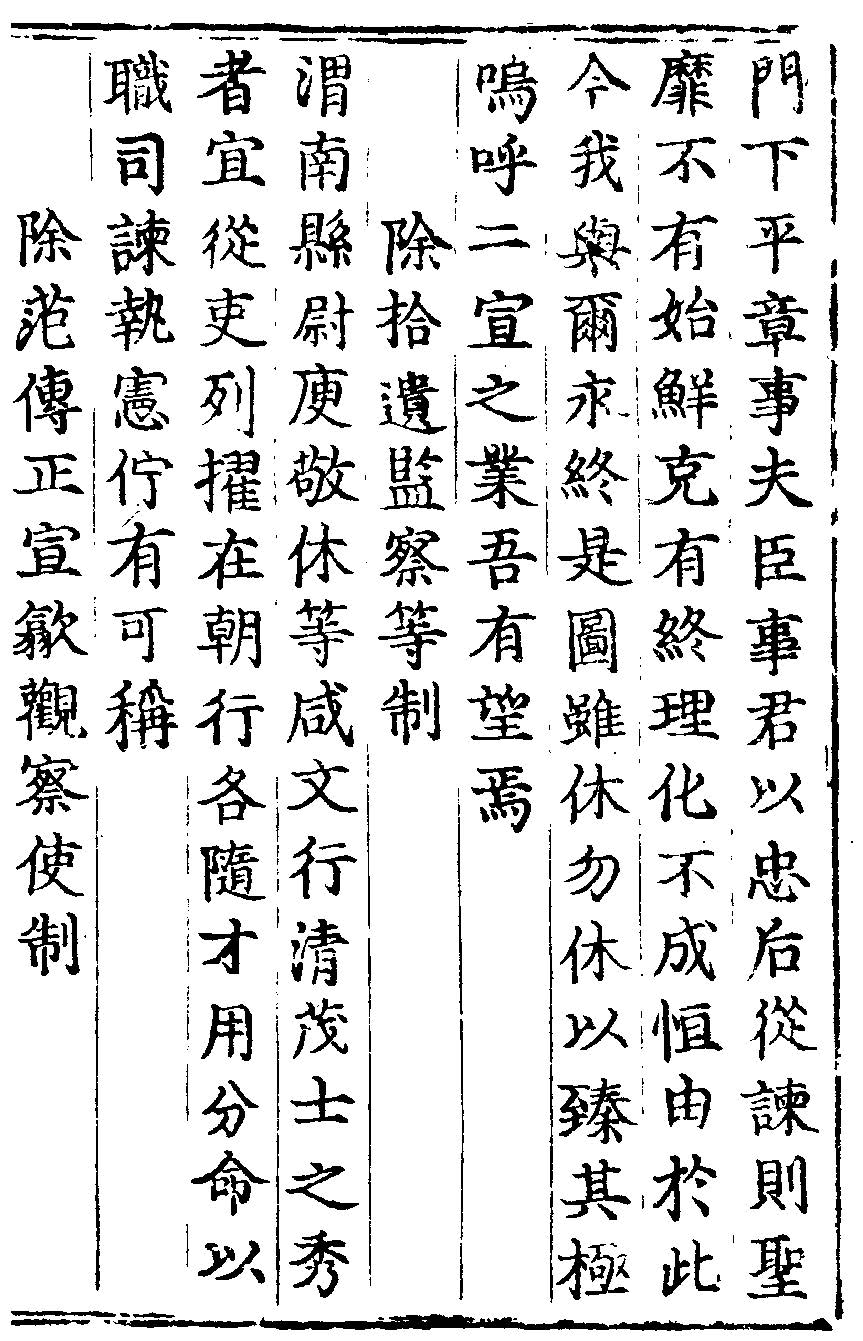 門下平章事夫臣事君以忠后從諫則聖
靡不有始鮮克有終理化不成恒由於此
今我與爾永終是圖雖休勿休以臻其極
嗚呼二宣之業吾有望焉
除拾遺監察等制
渭南縣尉庾敬休等咸文行清茂士之秀
者宜從吏列擢在朝行各隨才用分命以
職司諫執憲佇有可稱
除范傳正宣歙觀察使制